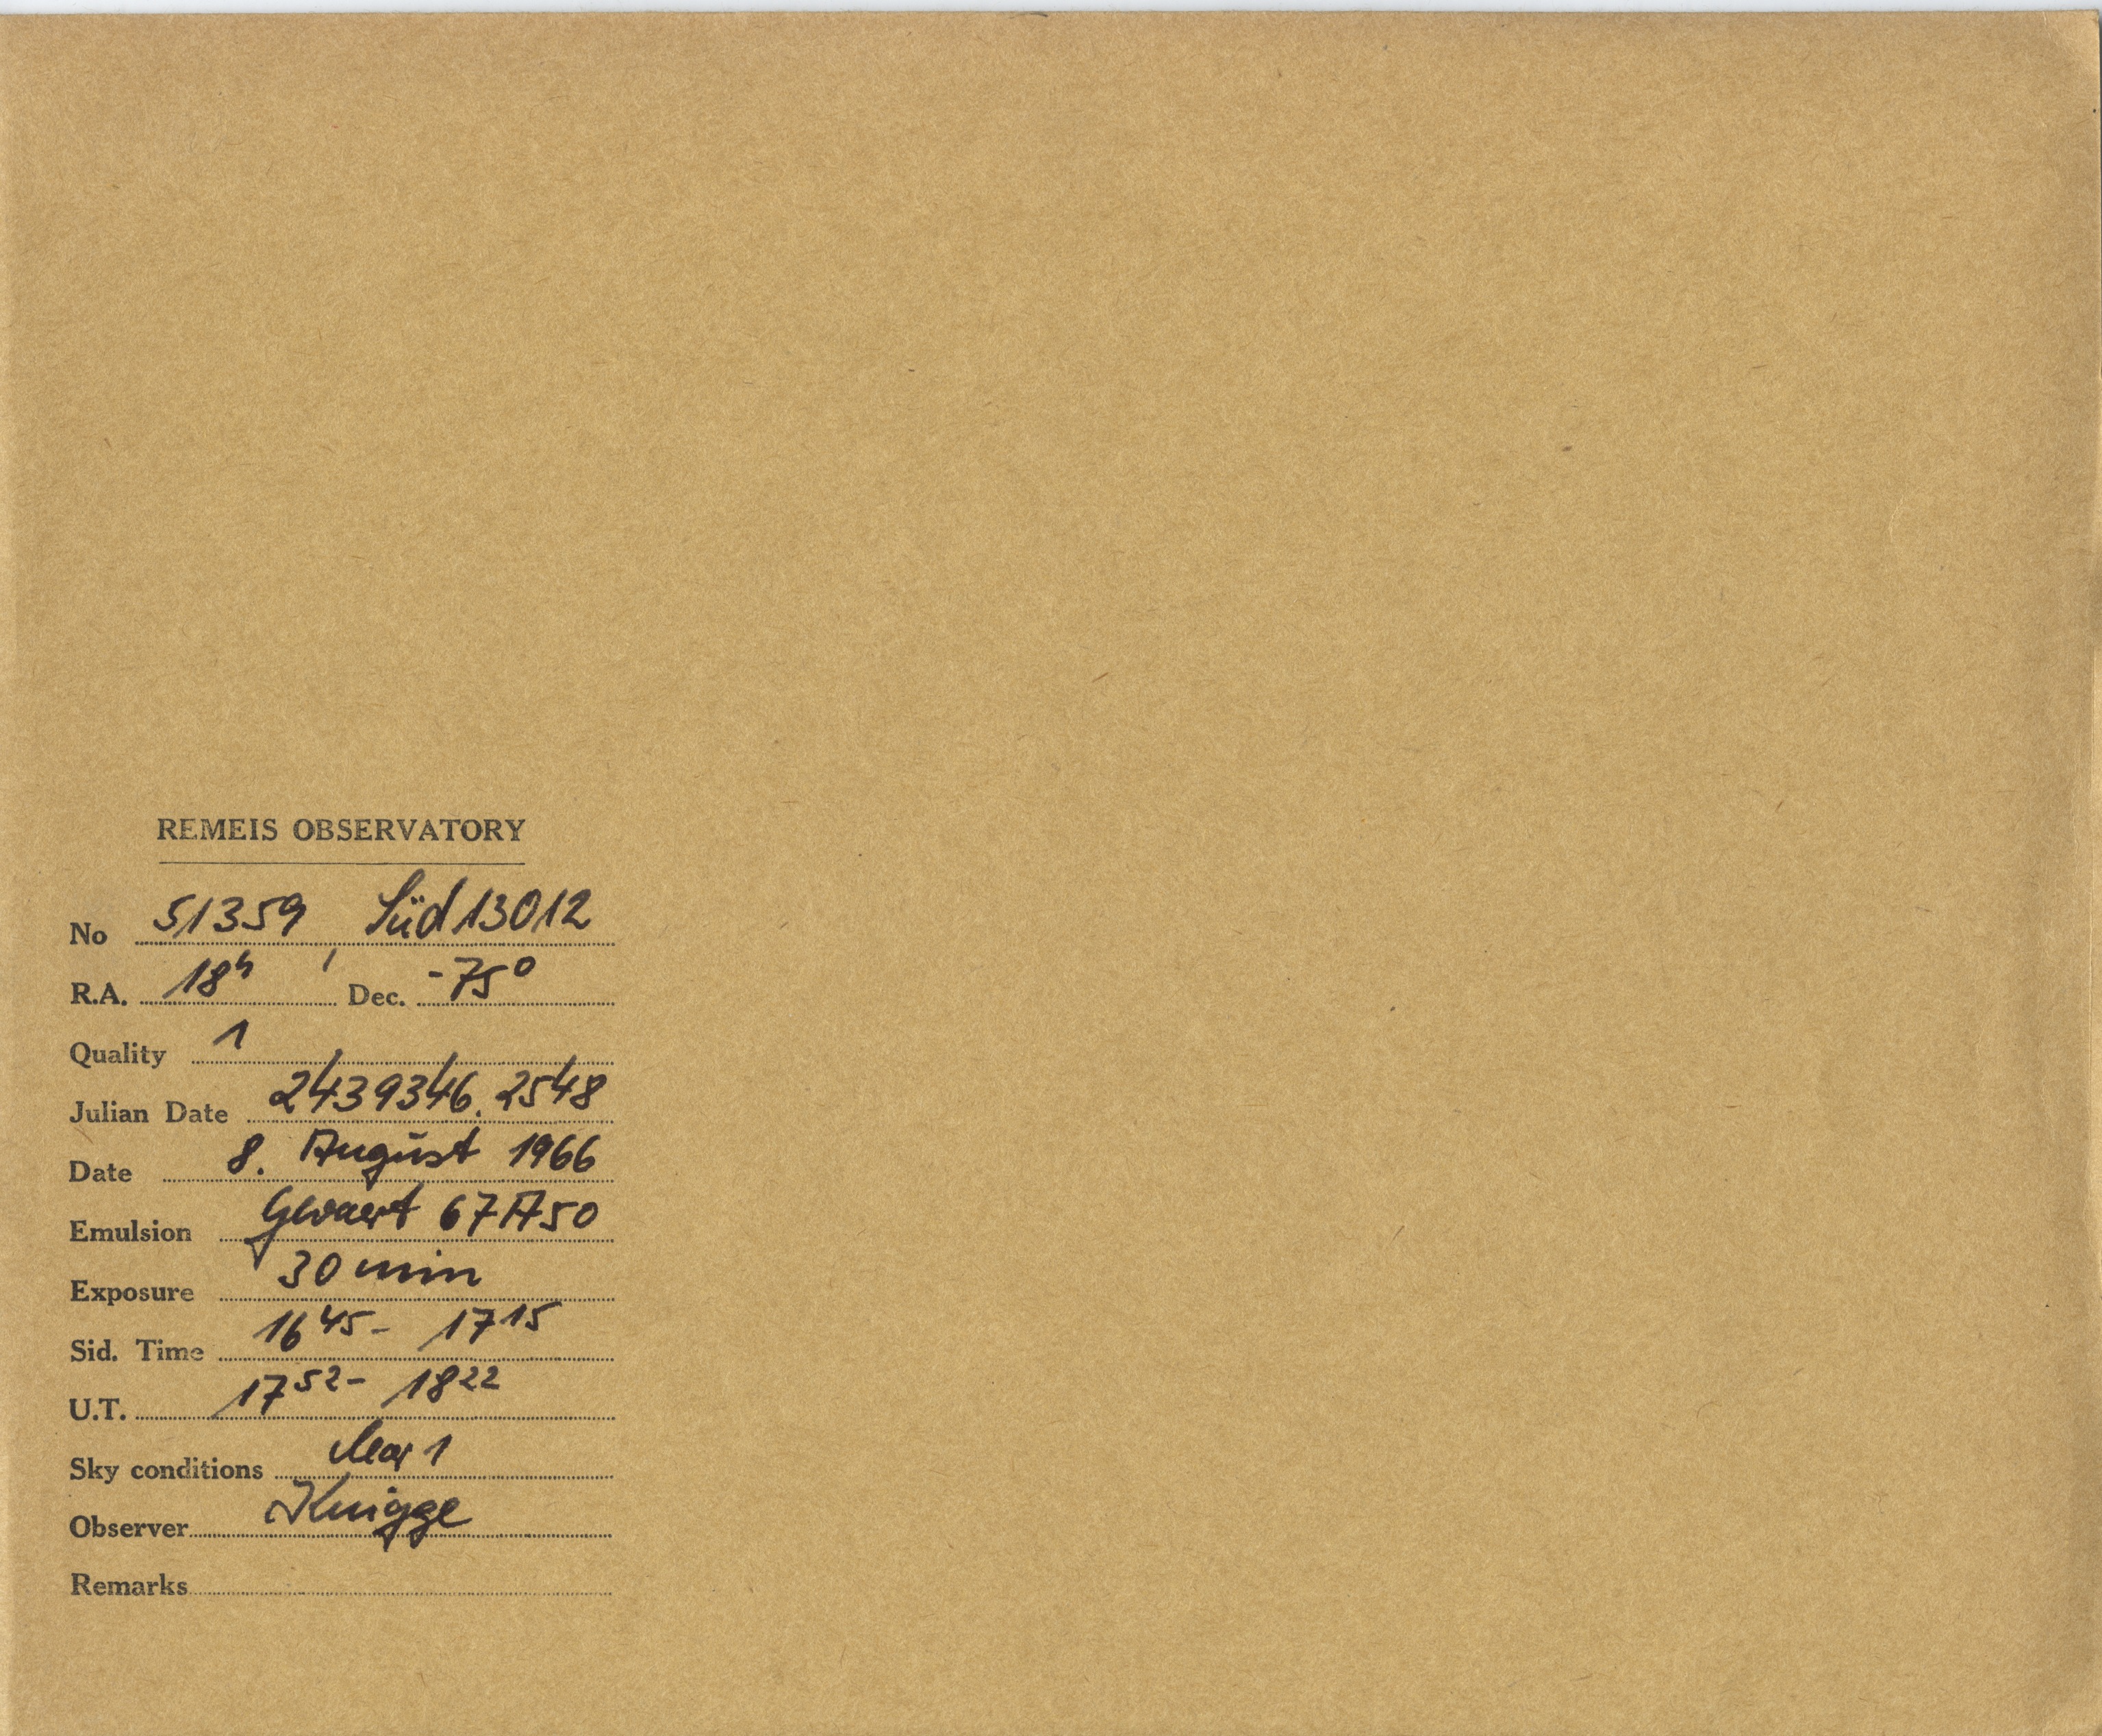 REMEIS OBSERVATORY
No 51359, Süd 13012
R.A. 18h Dec. -75°
Quality 1
Julian Date 2439346.2548
Date 8. August 1966
Emulsion Gevaert 67A50
Exposure 30 min
Sid. Time 16 45 - 17 15
U.T. 17 52 - 18 22
Sky conditions clear 1
Observer Knigge
Remarks